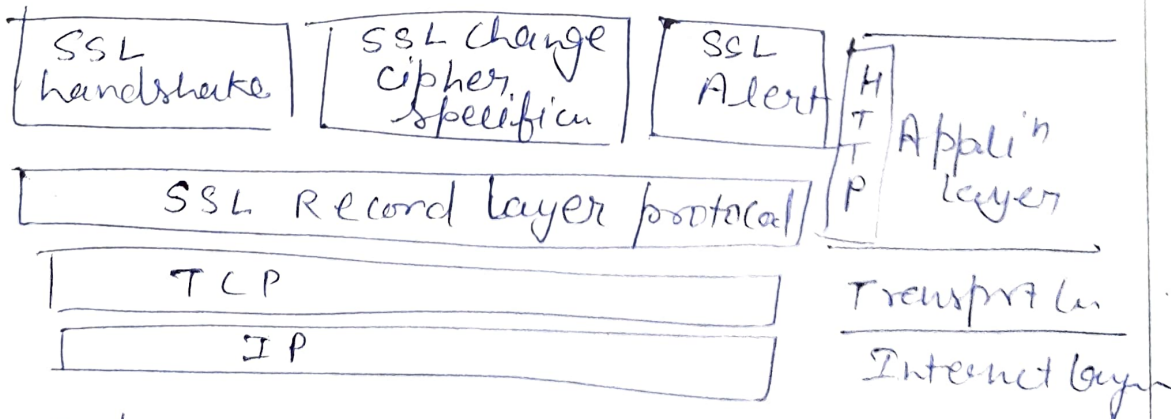 SSL
handshake
SSL Change
cipher
specificn
SSL
Alert
H
T
T
P
Appli'n
layer
SSL Record layer protocol
TCP
Transport
IP
Internet layer